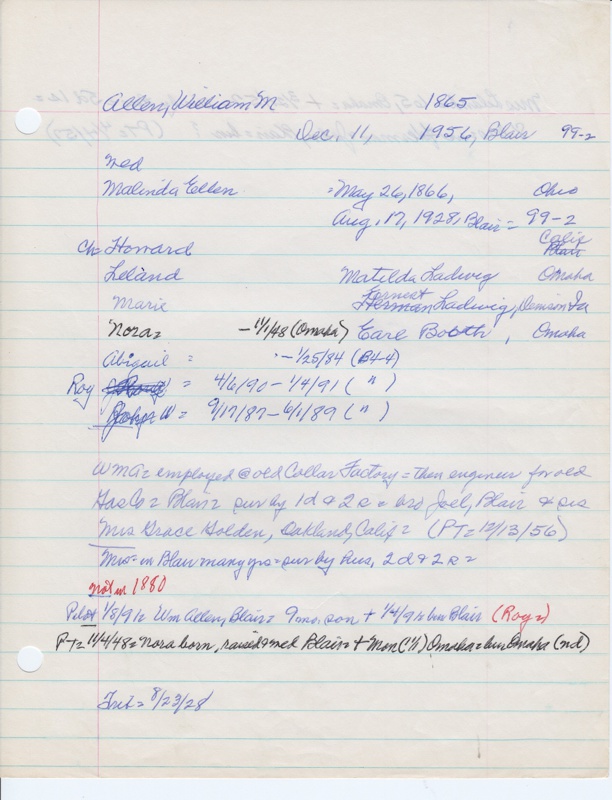 Allen, William M 1865
Dec. 11, 1956, Blair 99-2
Med
Malinda Ellen = May 26, 1866, Ohio
Aug. 17, 1928, Blair = 99-2
Calif
Ch Howard Blair
Leland Matilda Ladwig Omaha
Marie Ernest Herman Ladwig, Denison Ia
Nora = - 11/1/48 (Omaha) Earl Booth, Omaha
Abigail = - 1/25/84 (B4-4)
Roy = 4/6/90 - 1/4/91 (")
W = 9/17/87 - 6/1/89 (")
Wm A = employed @ old Collar Factory = then engineer for old
Gas Co = Blair = sur by 1 d & 2 s = bro Joel, Blair & sis
Mrs Grace Holden, Oakland, Calif = (PT = 12/13/56)
Mrs = in Blair many yrs = sur by hus, 2 d & 2 s =
not in 1880
Pilot 1/8/91 = Wm Allen, Blair = 9 mo. son + 1/4/91 = bur Blair (Roy =)
PT = 11/4/48 = Nora born, raised & med Blair = + Mon (11/1) Omaha = bur Omaha (nd)
Trib = 8/23/28